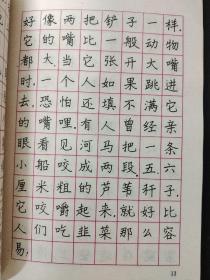 好像两把铲子一样.
它的嘴比一般动物
都大.它张开大嘴
时.一个人如果跳进它
去.恐怕还填不满它
的嘴哩.有人曾经亲
眼看见河马把一条
小船咬成两段.五六
厘米粗的芦苇秆子.
它咬嚼起来.就好比
人们吃韭菜那么容
易;
33